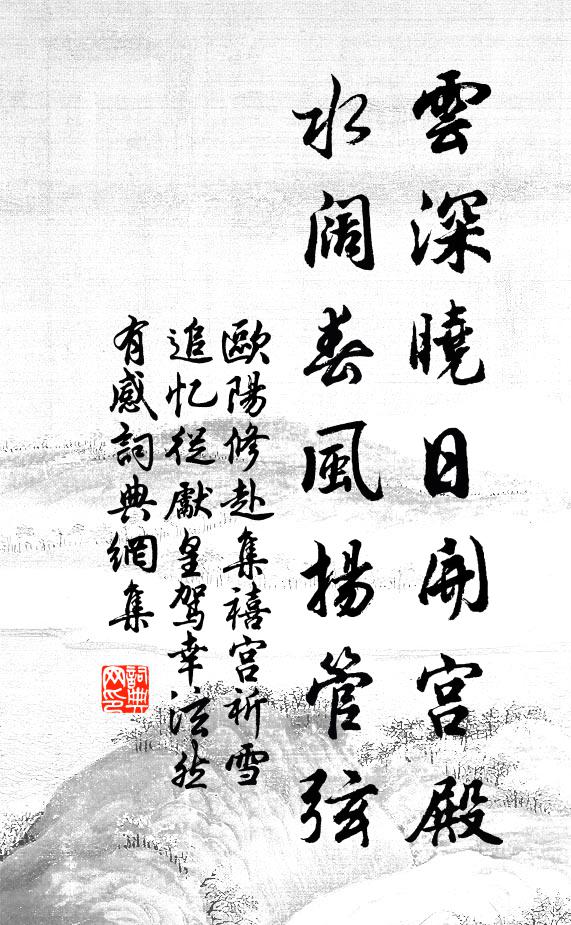 雲深曉日開宮殿
水闊春風揚管弦
歐陽修赴集禧宮祈雪
追忆從獻皇駕幸泫然
有感詞典網集
詞典網印